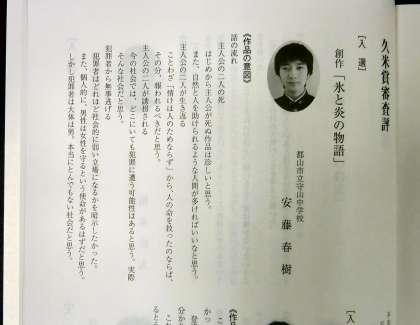 久米賞審査評
【入選】
創作「氷と炎の物語」
郡山市立守山中学校
安藤春樹
《作品の意図》
話の流れ
主人公の二人の死
はじめから主人公が死ぬ作品は珍しいと思う。
また、自然と人を助けられるような人間が多ければいいなと思う。
主人公の二人が生き返る
ことわざ「情けは人のためならず」から、人の命を救ったのならば、
その分、報われるべきだと思う。
主人公の二人が誘拐される
今の社会では、どこにいても犯罪に遭う可能性はあると思う。実際
そんな社会だと思う。
犯罪者から無事逃げる
犯罪者はどれほど社会的に弱い立場になるかを暗示したかった。
また、個人的に、男性は女性を守るという使命があるはずだと思う。
しかし犯罪者は大体は男。本当にとんでもない社会だと思う。
【入
《作品